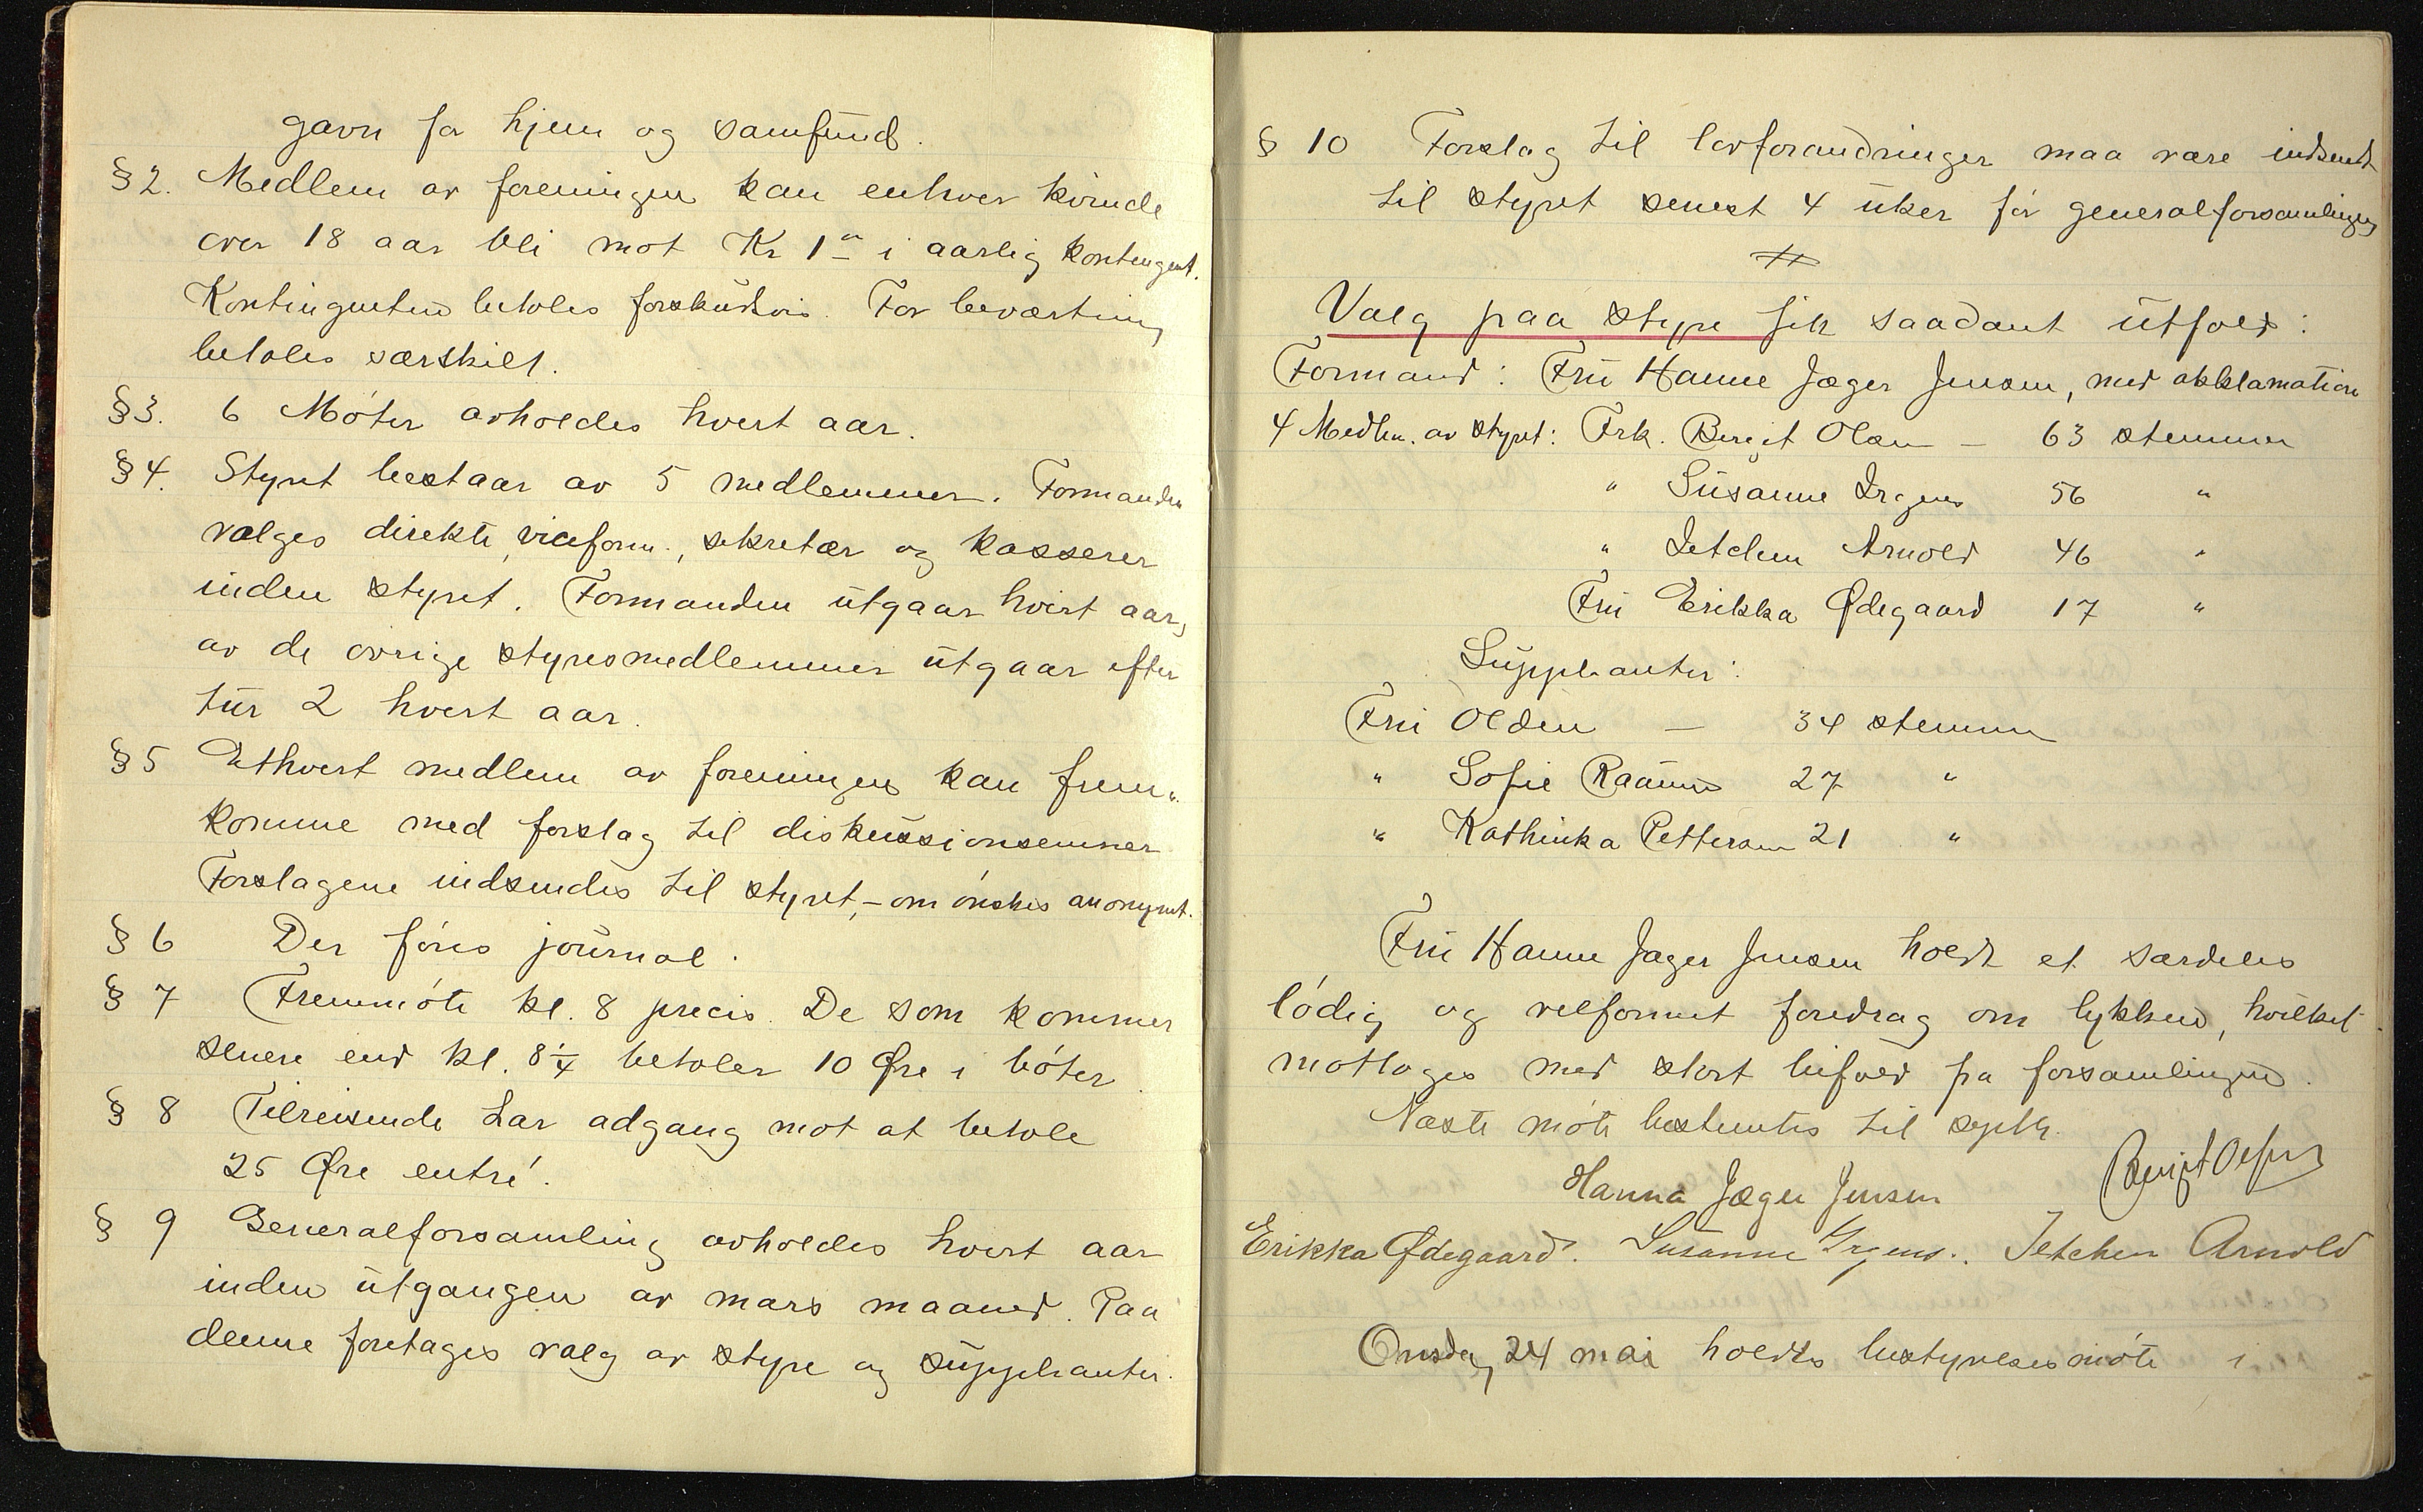 gavn for hjem og samfund.
§ 2. Medlem av foreningen kan enhver kvinde
over 18 aar bli mot Kr 1 " i aarlig kontingent.
Kontingenten betales forskudsvis. For beværtning
betales særskilt.
§ 3. 6 Møter avholdes hvert aar.
§ 4. Styret bestaar av 5 medlemmer. Formanden
vælges direkte, viceform., sekretær og kasserer
inden styret. Formanden utgaar hvert aar,
av de øvrige styresmedlemmer utgaar efter
tur 2 hvert aar.
§ 5 Ethvert medlem av foreningen kan frem-
komme med forslag til diskussionsemner
Forslagene indsendes til styret, – om ønskes anonymt.
§ 6 Der føres journal.
§ 7 Fremmøte kl. 8 precis. De som kommer
senere end kl. 8 1/4 betaler 10 Øre i bøter.
§ 8 Tilreisende har adgang mot at betale
25 Øre entré.
§ 9 Generalforsamling avholdes hvert aar
inden utgangen av mars maaned. Paa
denne foretages valg av styre og suppleanter.
§ 10 Forslag til lovforandringer maa være indsendt
til styret senest 4 uker før generalforsamlingen
Valg paa styre fik saadant utfald:
Formand: Fru Hanne Jæger Jensen, med akklamation
4 Medlem. av styret: Frk. Bergit Olsen – 63 stemmer
" Susanne Irgens 56 "
" Jetchen Arnold 46 "
Fru Erikka Ødegaard 17 "
Suppleanter:
Fru Olden – 34 stemmer
" Sofie Raanes 27 "
" Kathinka Pettersen 21 "
Fru Hanne Jæger Jensen holdt et særdeles
lødig og velformet foredrag om lykken, hvilket
mottoges med stort bifald fra forsamlingen.
Næste møte bestemtes til septbr.
Bergit Olsen
Hanna Jæger Jensen
Erikka Ødegaard. Susanne Irgens. Jetchen Arnold
Onsdag 24 mai holdtes bestyrelsesmøte i